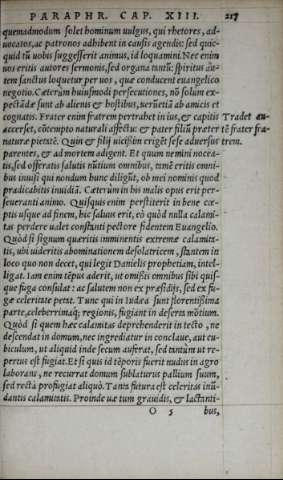 PARAPHR. CAP. XIII. 217
quemadmodum solet hominum uulgus, qui rhetores, ad-
uocatos, ac patronos adhibent in causis agendis: sed quic-
quid tũ uobis suggesserit animus, id loquamini. Nec enim
uos eritis autores sermonis, sed organa tantũ: spiritus au-
tem sanctus loquetur per uos, quæ conducent euangelico
negotio. Cæterùm huiusmodi persecutiones, nõ solum ex-
pectãdæ sunt ab alienis & hostibus, uerũetiã ab amicis et
cognatis. Frater enim fratrem pertrahet in ius, & capitis
accerset, cõtempto naturali affectu: & pater filiũ præter
naturæ pietatẽ. Quin & filij uicißim erigẽt sese aduersus
parentes, & ad mortem adigent. Et quum nemini nocea-
tis, sed offeratis salutis nũtium omnibus, tamẽ eritis omni-
bus inuisi qui nondum hunc diligũt, ob mei nominis quod
prædicabitis inuidiã. Cæterùm in his malis opus erit per-
seueranti animo. Quisquis enim perstiterit in bene cœ-
ptis usque ad finem, hic saluus erit, eò quòd nulla calami-
tas perdere ualet constanti pectore fidentem Euangelio.
Quòd si signum quæritis imminentis extremæ calamita-
tis, ubi uideritis abominationem desolatricem, stantem in
loco quo non decet, qui legit Danielis prophetiam, intel-
ligat. Iam enim tẽpus aderit, ut omißis omnibus sibi quis-
que fuga consulat: ac salutem non ex præsidijs, sed ex fu-
gæ celeritate petat. Tunc qui in Iudæa sunt florentißima
parte, celeberrimaq; regionis, fugiant in deserta mõtium.
Quòd si quem hæc calamitas deprehenderit in tecto, ne
descendat in domum, nec ingrediatur in conclaue, aut cu-
biculum, ut aliquid inde secum auferat, sed tantùm ut re-
pertus est fugiat. Et si quis id tẽporis fuerit nudus in agro
laborans, ne recurrat domum sublaturus pallium suum,
sed rectà profugiat aliquò. Tanta futura est celeritas inũ-
dantis calamitatis. Proinde uæ tum grauidis, & lactanti-
O 5 bus,
Tradet au-
tẽ frater fra-
trem.